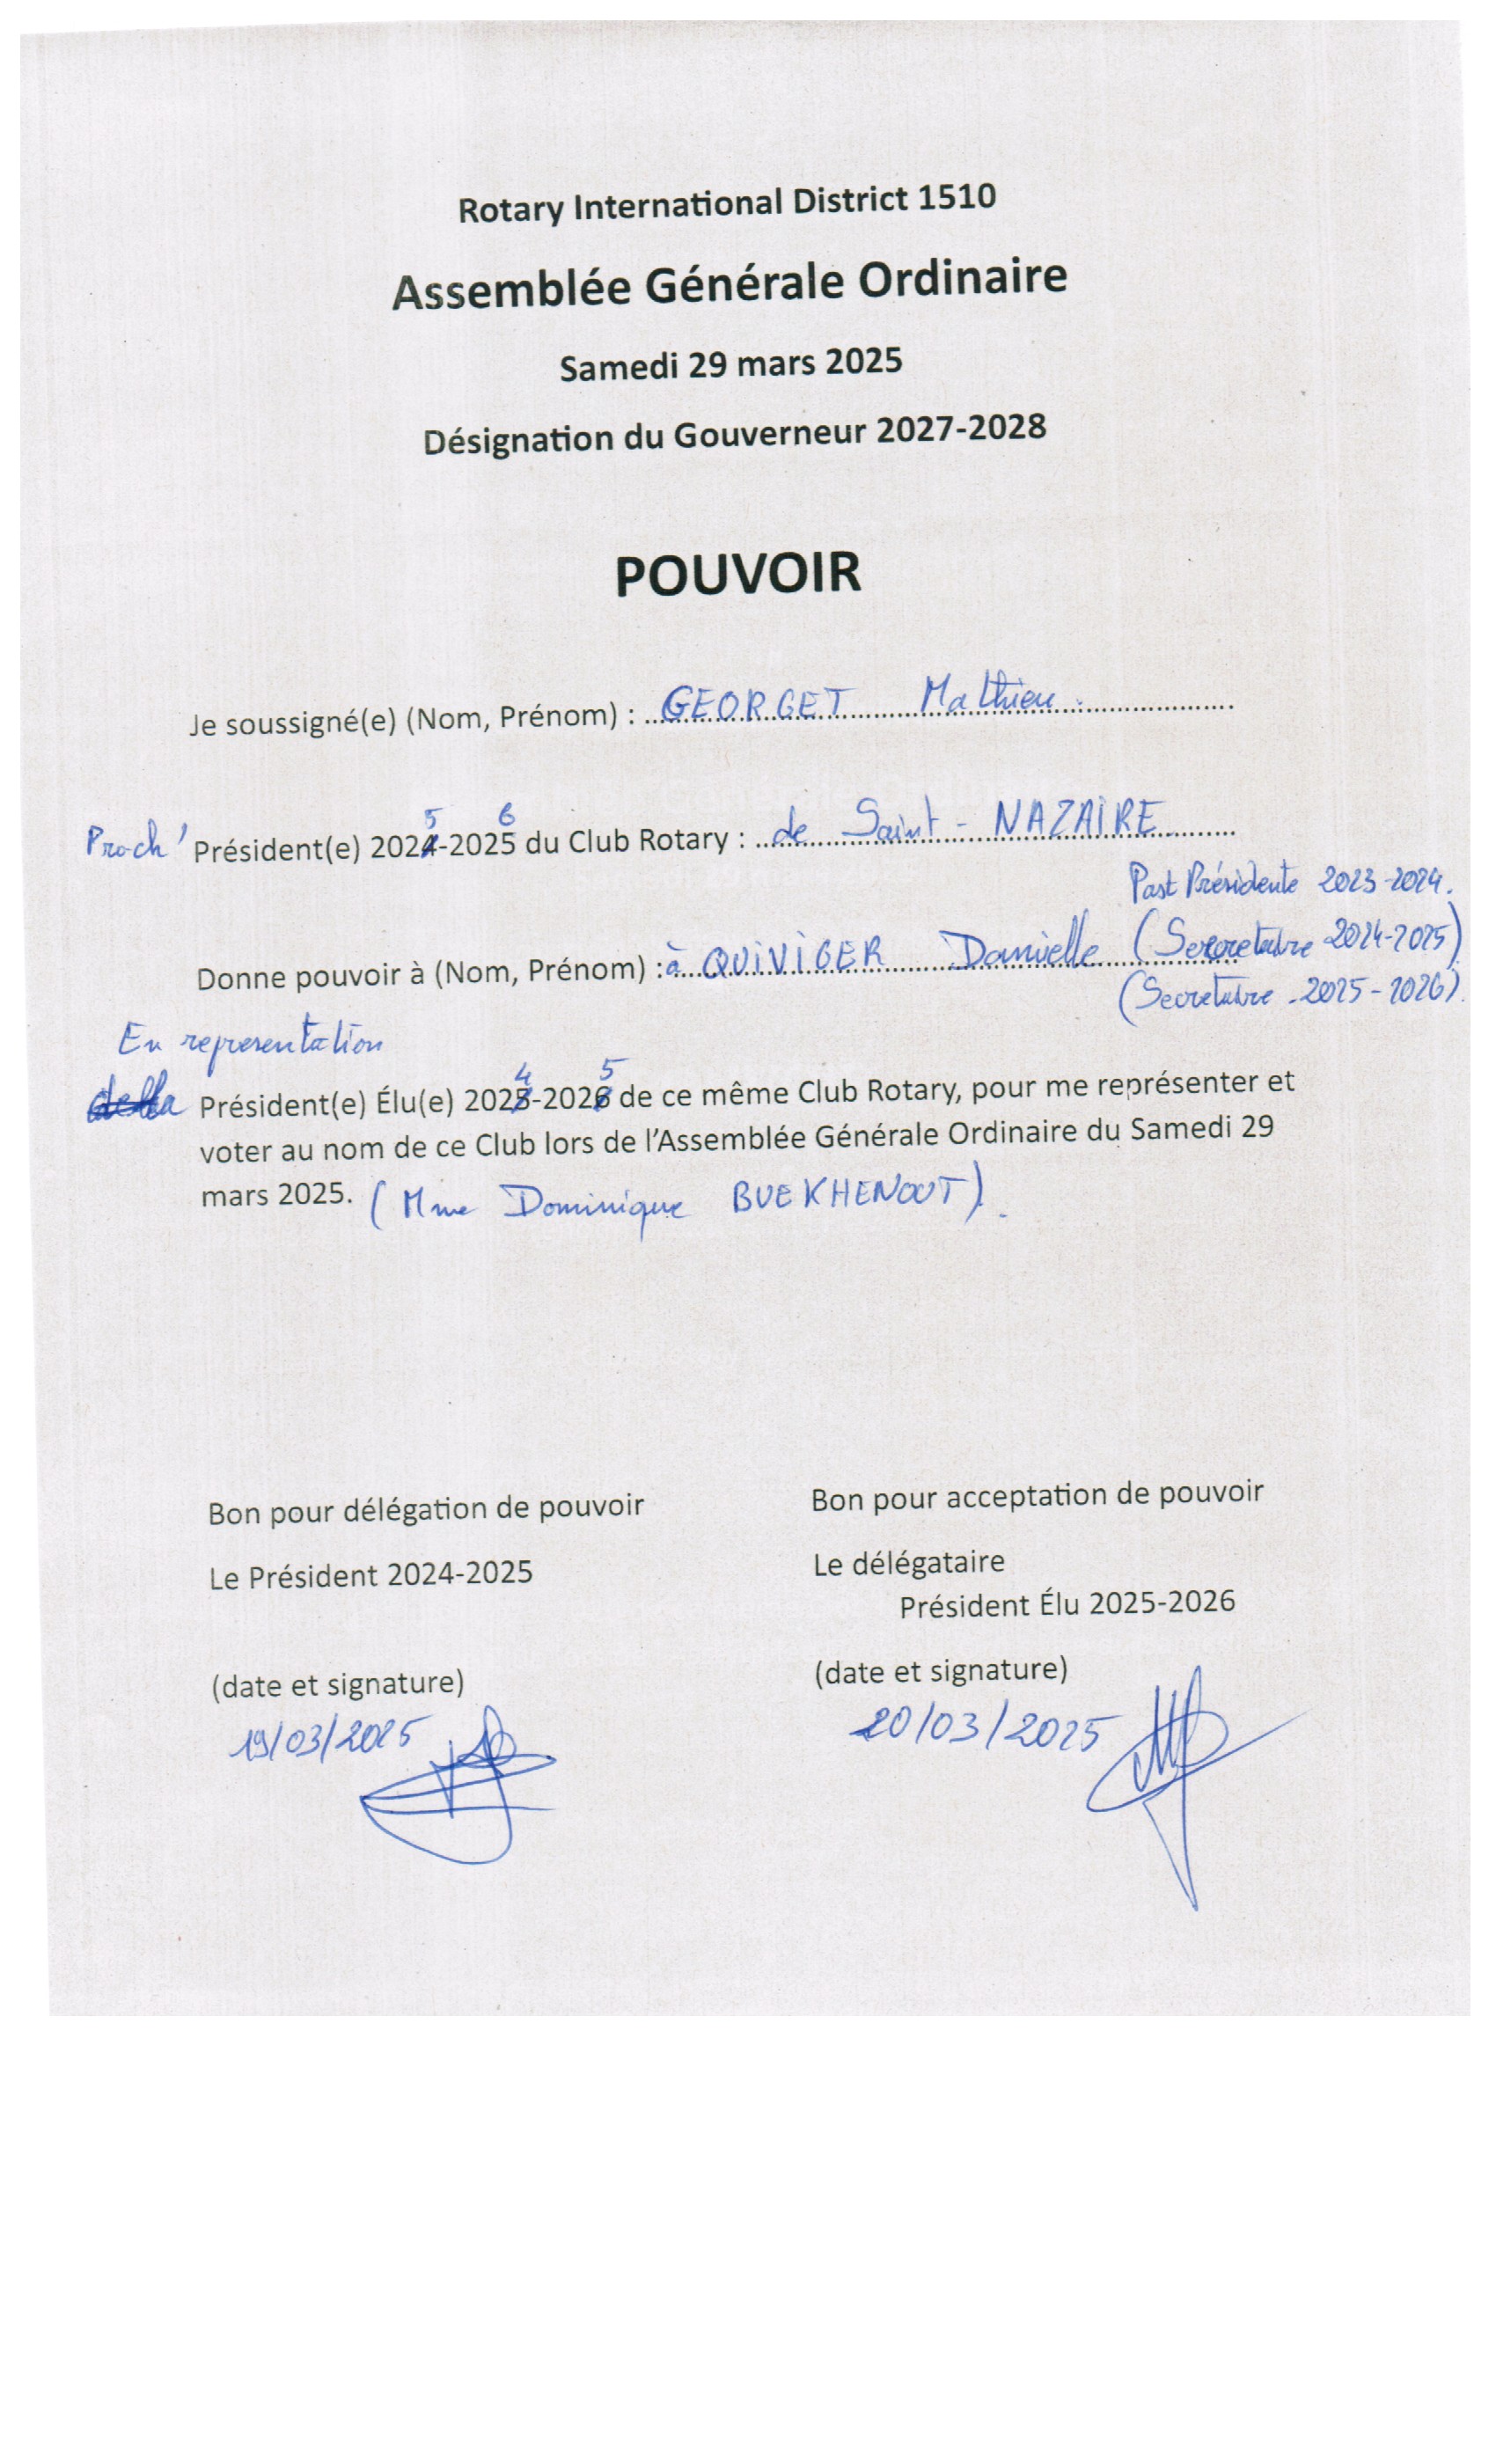 Rotary International District 1510
Assemblée Générale Ordinaire
Samedi 29 mars 2025
Désignation du Gouverneur 2027-2028
POUVOIR
Je soussigné(e) (Nom, Prénom) : GEORGET Mathieu.
5 6
Proch' Président(e) 2024-2025 du Club Rotary : de Saint-NAZAIRE
Past Présidente 2023-2024.
Donne pouvoir à (Nom, Prénom) : à QUIVIGER Danielle (Secretaire 2024-2025)
(Secretaire - 2025-2026).
En representation
4 5
de la Président(e) Élu(e) 2025-2026 de ce même Club Rotary, pour me représenter et
voter au nom de ce Club lors de l'Assemblée Générale Ordinaire du Samedi 29
mars 2025. (Mme Dominique BUEKHENOUT).
Bon pour délégation de pouvoir Bon pour acceptation de pouvoir
Le Président 2024-2025 Le délégataire
Président Élu 2025-2026
(date et signature) (date et signature)
19/03/2025 20/03/2025